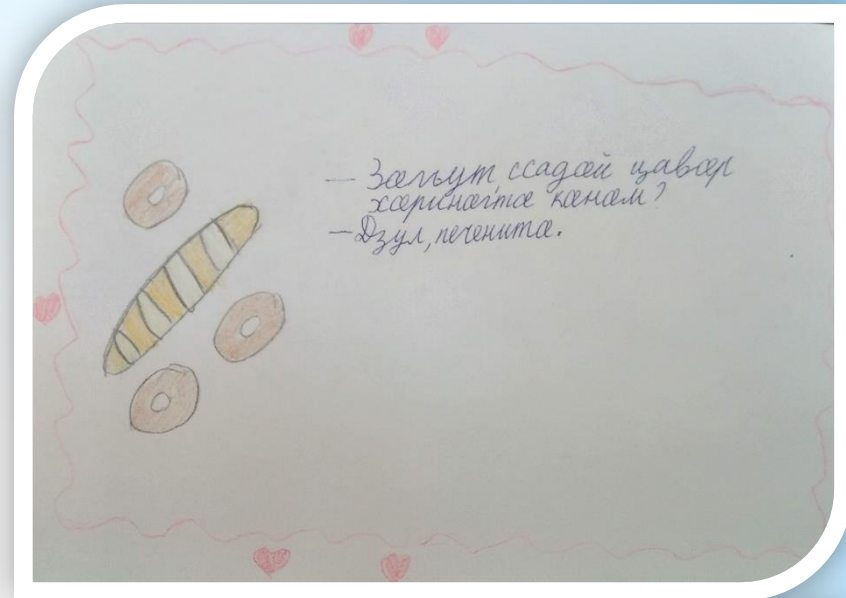 — Зӕгъут ссадӕй цавӕр
хӕринӕгтӕ кӕнӕм?
— Дзул, печенитӕ.